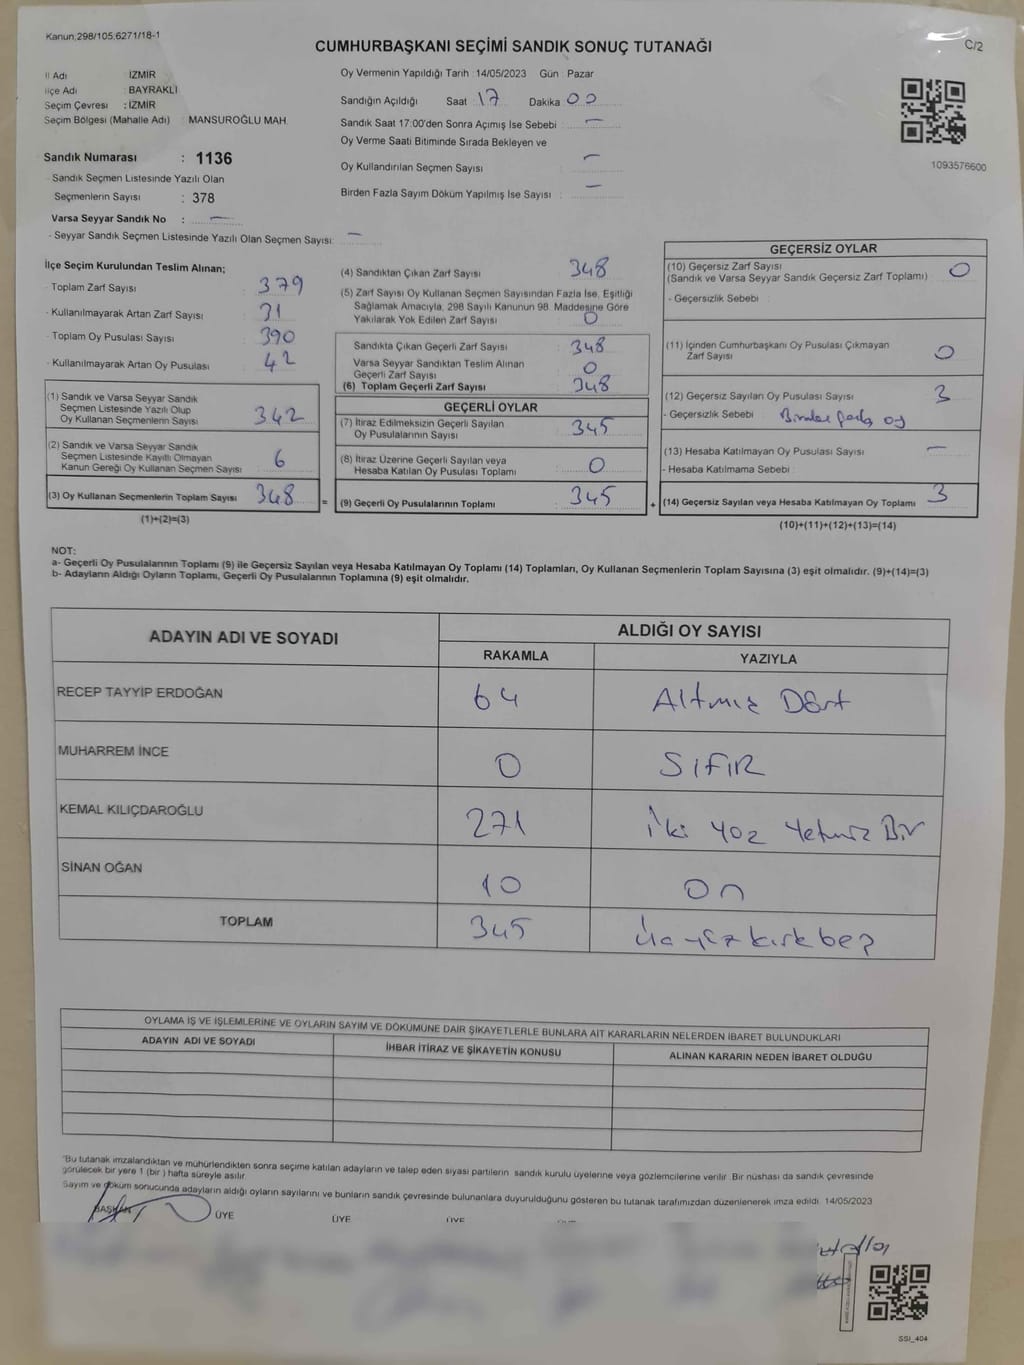 Kanun,298/105,6271/18-1
C/2
CUMHURBAŞKANI SEÇİMİ SANDIK SONUÇ TUTANAĞI
İl Adı : İZMİR
İlçe Adı : BAYRAKLI
Seçim Çevresi : İZMİR
Seçim Bölgesi (Mahalle Adı) : MANSUROĞLU MAH.
Sandık Numarası : 1136
- Sandık Seçmen Listesinde Yazılı Olan
Seçmenlerin Sayısı : 378
Varsa Seyyar Sandık No : —
- Seyyar Sandık Seçmen Listesinde Yazılı Olan Seçmen Sayısı: —
Oy Vermenin Yapıldığı Tarih : 14/05/2023 Gün : Pazar
Sandığın Açıldığı Saat 17 Dakika 00
Sandık Saat 17:00'den Sonra Açımış İse Sebebi : —
Oy Verme Saati Bitiminde Sırada Bekleyen ve
Oy Kullandırılan Seçmen Sayısı : —
Birden Fazla Sayım Döküm Yapılmış İse Sayısı : —
1093576600
İlçe Seçim Kurulundan Teslim Alınan;
- Toplam Zarf Sayısı : 379
- Kullanılmayarak Artan Zarf Sayısı : 31
- Toplam Oy Pusulası Sayısı : 390
- Kullanılmayarak Artan Oy Pusulası : 42
(1) Sandık ve Varsa Seyyar Sandık
Seçmen Listesinde Yazılı Olup
Oy Kullanan Seçmenlerin Sayısı : 342
(2) Sandık ve Varsa Seyyar Sandık
Seçmen Listesinde Kayıtlı Olmayan
Kanun Gereği Oy Kullanan Seçmen Sayısı : 6
(3) Oy Kullanan Seçmenlerin Toplam Sayısı : 348
(1)+(2)=(3)
(4) Sandıktan Çıkan Zarf Sayısı : 348
(5) Zarf Sayısı Oy Kullanan Seçmen Sayısından Fazla İse, Eşitliği
Sağlamak Amacıyla, 298 Sayılı Kanunun 98. Maddesine Göre
Yakılarak Yok Edilen Zarf Sayısı : 0
Sandıkta Çıkan Geçerli Zarf Sayısı : 348
Varsa Seyyar Sandıktan Teslim Alınan
Geçerli Zarf Sayısı : 0
(6) Toplam Geçerli Zarf Sayısı : 348
GEÇERLİ OYLAR
(7) İtiraz Edilmeksizin Geçerli Sayılan
Oy Pusulalarının Sayısı : 345
(8) İtiraz Üzerine Geçerli Sayılan veya
Hesaba Katılan Oy Pusulası Toplamı : 0
= (9) Geçerli Oy Pusulalarının Toplamı : 345 +
GEÇERSİZ OYLAR
(10) Geçersiz Zarf Sayısı : 0
(Sandık ve Varsa Seyyar Sandık Geçersiz Zarf Toplamı)
- Geçersizlik Sebebi :
(11) İçinden Cumhurbaşkanı Oy Pusulası Çıkmayan
Zarf Sayısı : 0
(12) Geçersiz Sayılan Oy Pusulası Sayısı : 3
- Geçersizlik Sebebi : Birden fazla oy
(13) Hesaba Katılmayan Oy Pusulası Sayısı : —
- Hesaba Katılmama Sebebi :
(14) Geçersiz Sayılan veya Hesaba Katılmayan Oy Toplamı : 3
(10)+(11)+(12)+(13)=(14)
NOT:
a- Geçerli Oy Pusulalarının Toplamı (9) ile Geçersiz Sayılan veya Hesaba Katılmayan Oy Toplamı (14) Toplamları, Oy Kullanan Seçmenlerin Toplam Sayısına (3) eşit olmalıdır. (9)+(14)=(3)
b- Adayların Aldığı Oyların Toplamı, Geçerli Oy Pusulalarının Toplamına (9) eşit olmalıdır.
ADAYIN ADI VE SOYADI
ALDIĞI OY SAYISI
RAKAMLA YAZIYLA
RECEP TAYYİP ERDOĞAN 64 Altmış Dört
MUHARREM İNCE 0 SIFIR
KEMAL KILIÇDAROĞLU 271 iki yüz Yetmiş Bir
SİNAN OĞAN 10 On
TOPLAM 345 üçyüzkırkbeş
OYLAMA İŞ VE İŞLEMLERİNE VE OYLARIN SAYIM VE DÖKÜMÜNE DAİR ŞİKAYETLERLE BUNLARA AİT KARARLARIN NELERDEN İBARET BULUNDUKLARI
ADAYIN ADI VE SOYADI İHBAR İTİRAZ VE ŞİKAYETİN KONUSU ALINAN KARARIN NEDEN İBARET OLDUĞU
"Bu tutanak imzalandıktan ve mühürlendikten sonra seçime katılan adayların ve talep eden siyasi partilerin sandık kurulu üyelerine veya gözlemcilerine verilir. Bir nüshası da sandık çevresinde
görülecek bir yere 1 (bir) hafta süreyle asılır.
Sayım ve döküm sonucunda adayların aldığı oyların sayılarını ve bunların sandık çevresinde bulunanlara duyurulduğunu gösteren bu tutanak tarafımızdan düzenlenerek imza edildi. 14/05/2023
BAŞKAN ÜYE ÜYE ÜYE
SSI_404